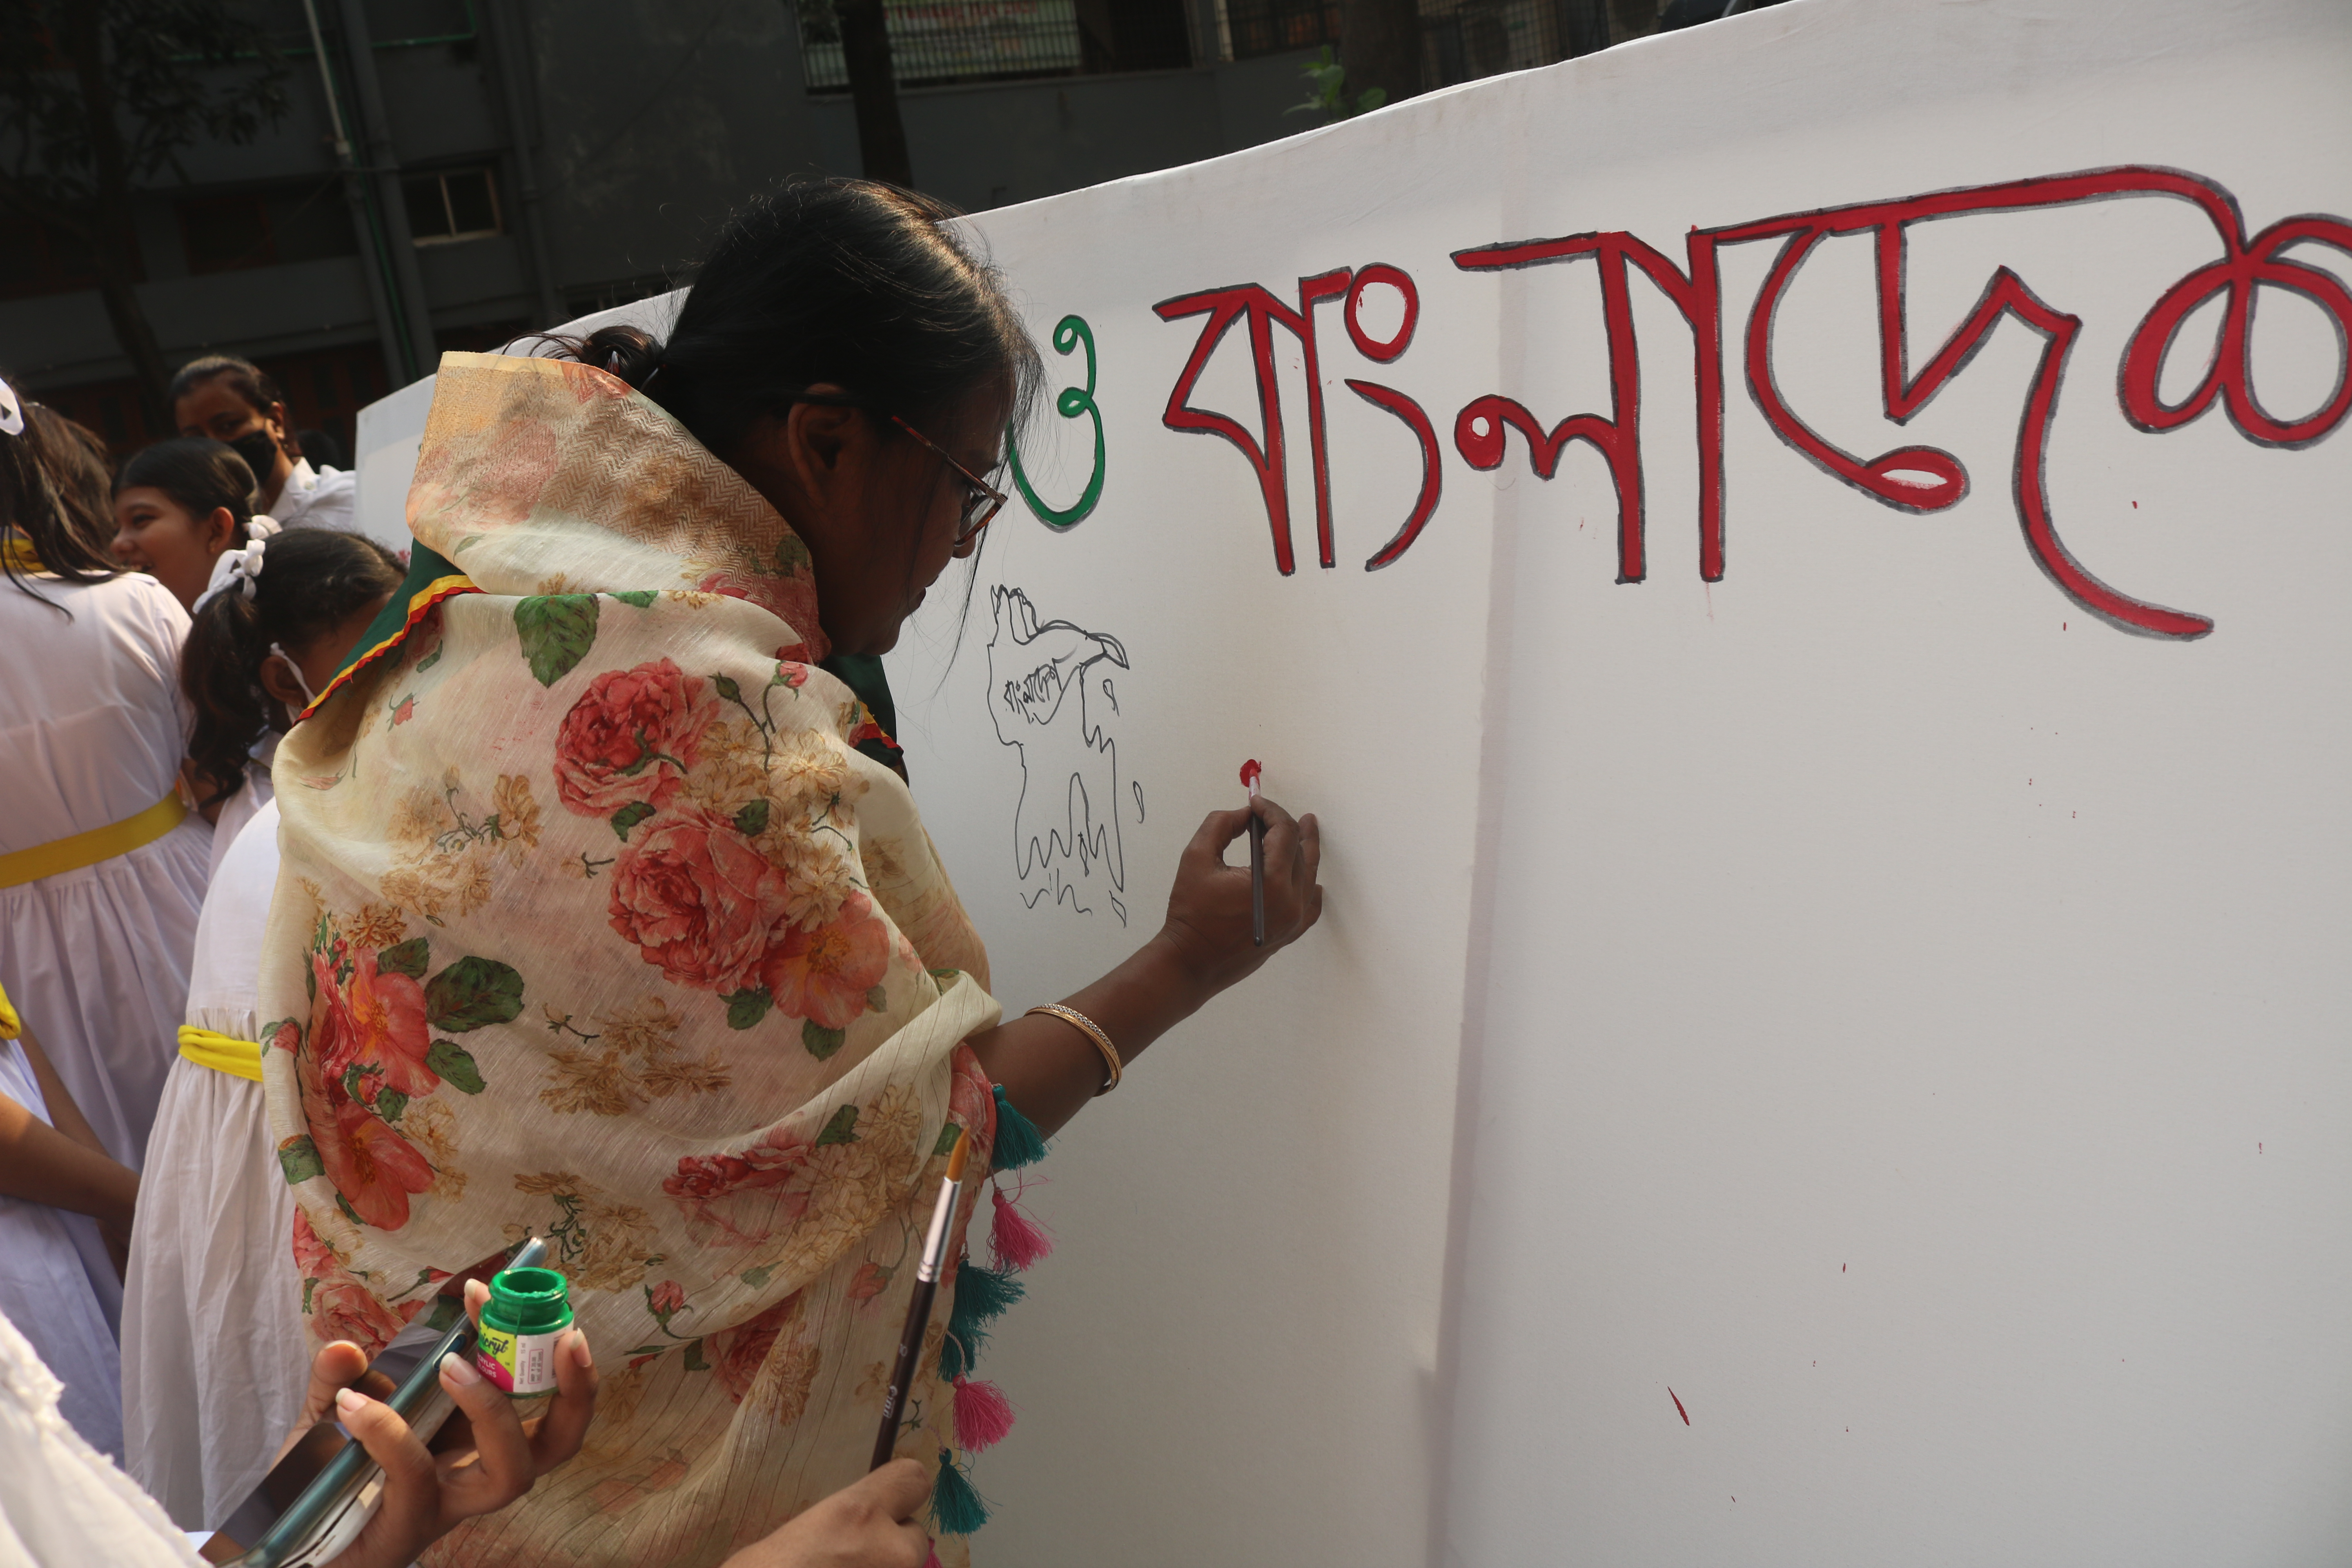 ও বাংলাদেশ
বাংলাদেশ